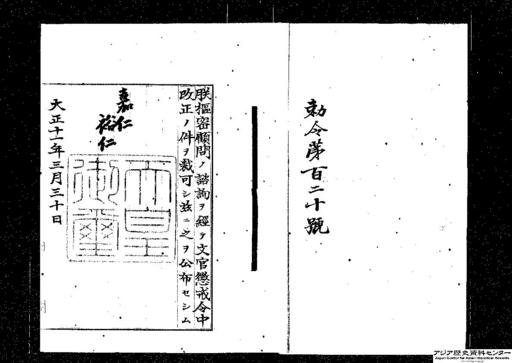 勅令第百二十號
朕樞密顧問ノ諮詢ヲ經テ文官懲戒令中
改正ノ件ヲ裁可シ玆ニ之ヲ公布セシム
嘉仁
裕仁
天皇
御璽
大正十一年三月三十日
アジア歴史資料センター
Japan Center for Asian Historical Records